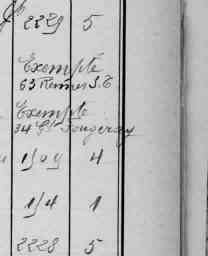 2229 5
Exempté
63 Rennes S.E
Exempté
34 Gd Fougeray
1509 4
154 1
2228 5